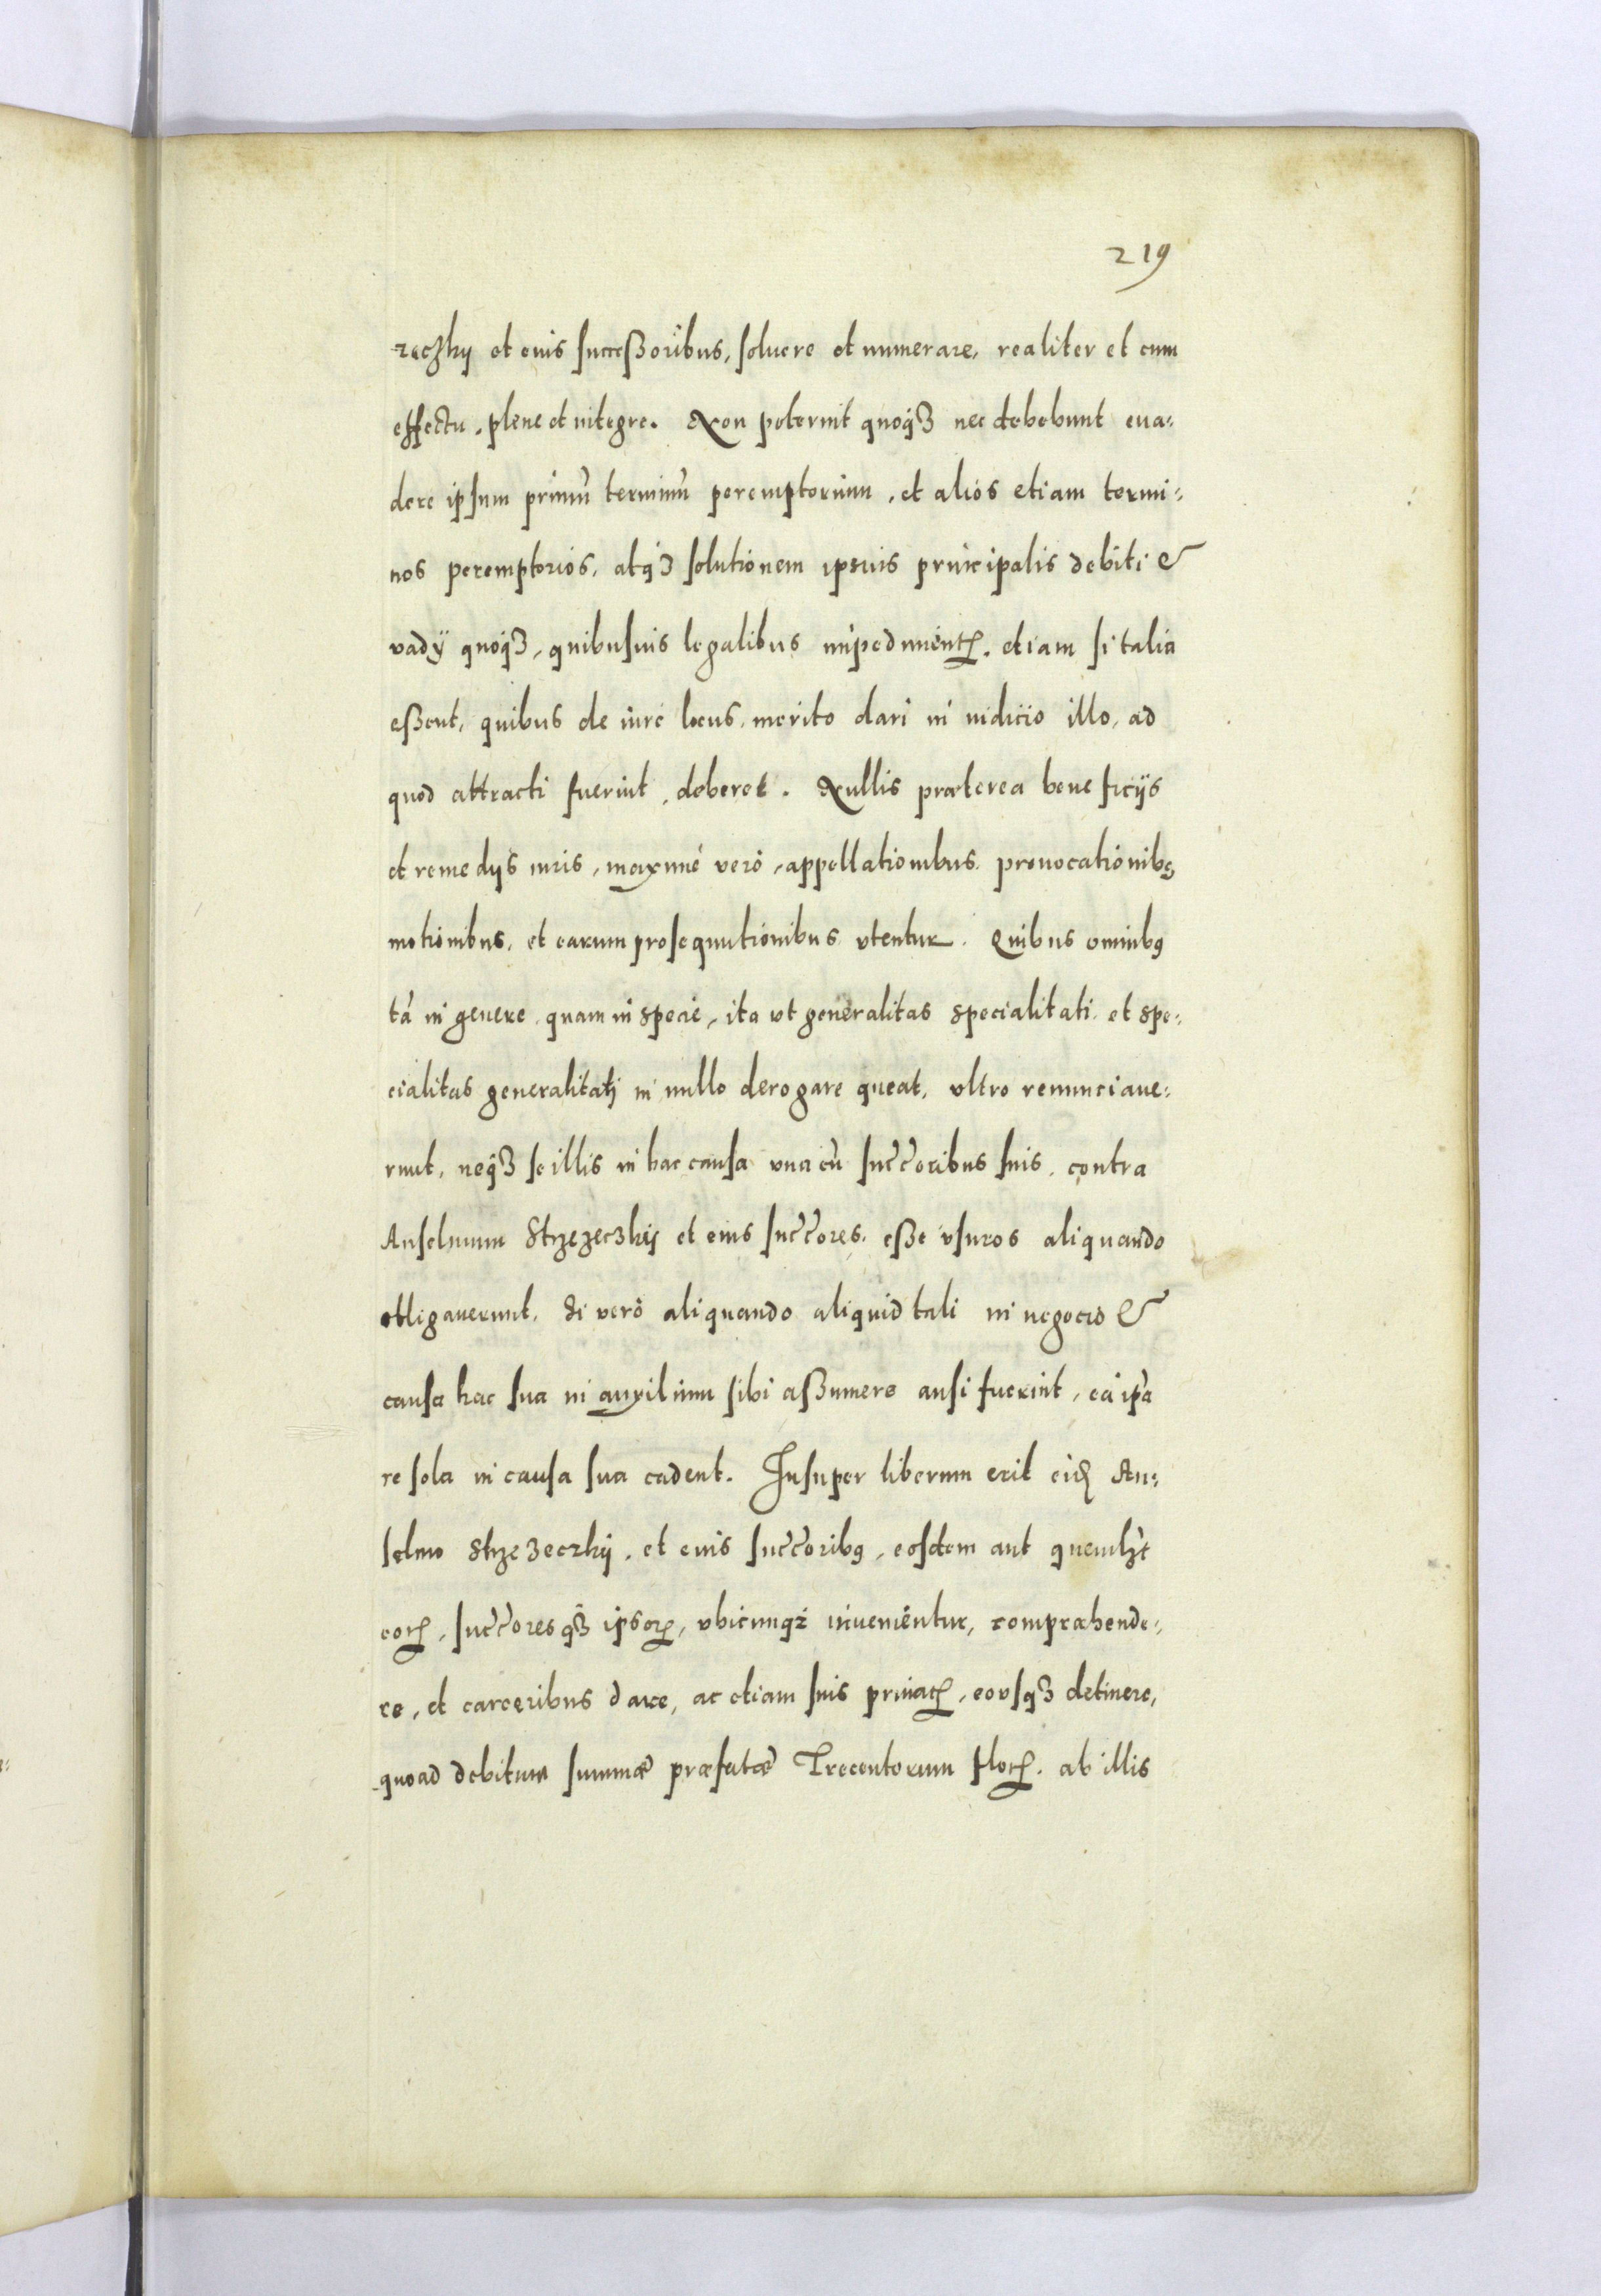 219
zeczkij et eius succeßoribus, soluere et numerare, realiter et cum
effectu, plene et integre. Non poterint quoqʒ nec debebunt eua⸗
dere ipsum primū terminū peremptorium, et alios etiam termi⸗
nos peremptorios, atqʒ solutionem ipsius principalis debiti &
vadÿ quoqʒ, quibusuis legalibus impedimentꝭ, etiam si talia
eßent, quibus de iure locus, merito dari in iudicio illo, ad
quod attracti fuerint, deberet. Nullis præterea beneficijs
et remedijs iuris, maximè verò, appellationibus, prouocationibꝰ
motionibus, et earum prosequutionibus vtentur. Quibus omnibꝰ
tā in genere, quam in specie, ita vt generalitas specialitati, et spe⸗
cialitas generalitati in nullo derogare queat, vltro renunciaue⸗
runt, neqʒ se illis in hac causa vna cū succ̄oribus suis, contra
Anselmum Strzezeczkij et eius succ̄ores, eße vsuros aliquando
obligauerunt. Si verò aliquando aliquid tali in negocio &
causa hac sua in auxilium sibi aßumere ausi fuerint, eā ip̄a
re sola in causa sua cadent. Insuper liberum erit eidꝭ An⸗
selmo Strzezeczkij, et eius succ̄oribꝰ, eosdem aut quemlꝫt
eorꝝ, succ̄oresqʒ ipsorꝝ, vbicunqꝫ inuenientur, compræhende⸗
re, et carceribus dare, ac etiam suis priuatꝭ, eousqʒ detinere,
quoad debitum summæ præfatæ Trecentorum florꝝ. ab illis